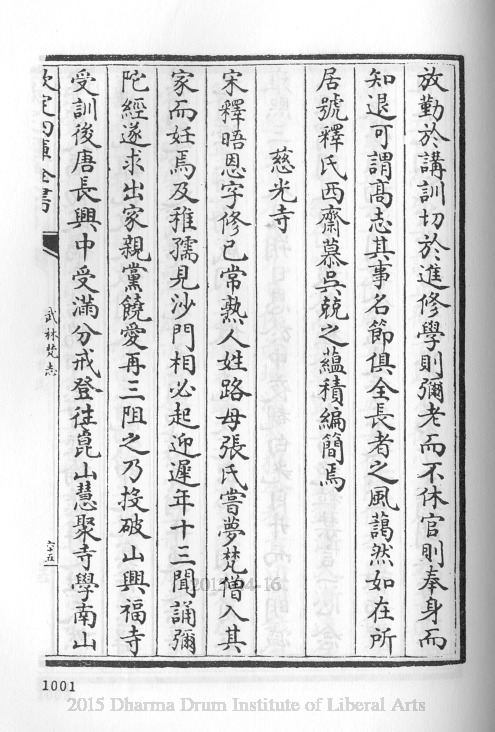 放勤於講訓切於進修學則彌老而不休官則奉身而
知退可謂高志其事名節俱全長者之風藹然如在所
居號釋氏西齋慕吳兢之蘊積編簡焉
慈光寺
宋釋晤恩字修已常熟人姓路母張氏嘗夢梵僧入其
家而妊焉及稚孺見沙門相必起迎遲年十三聞誦彌
陀經遂求出家親黨饒愛再三阻之乃投破山興福寺
受訓後唐長興中受滿分戒登徃崑山慧聚寺學南山
欽定四庫全書
武林梵志
六十五
1001
2015-04-16
2015 Dharma Drum Institute of Liberal Arts